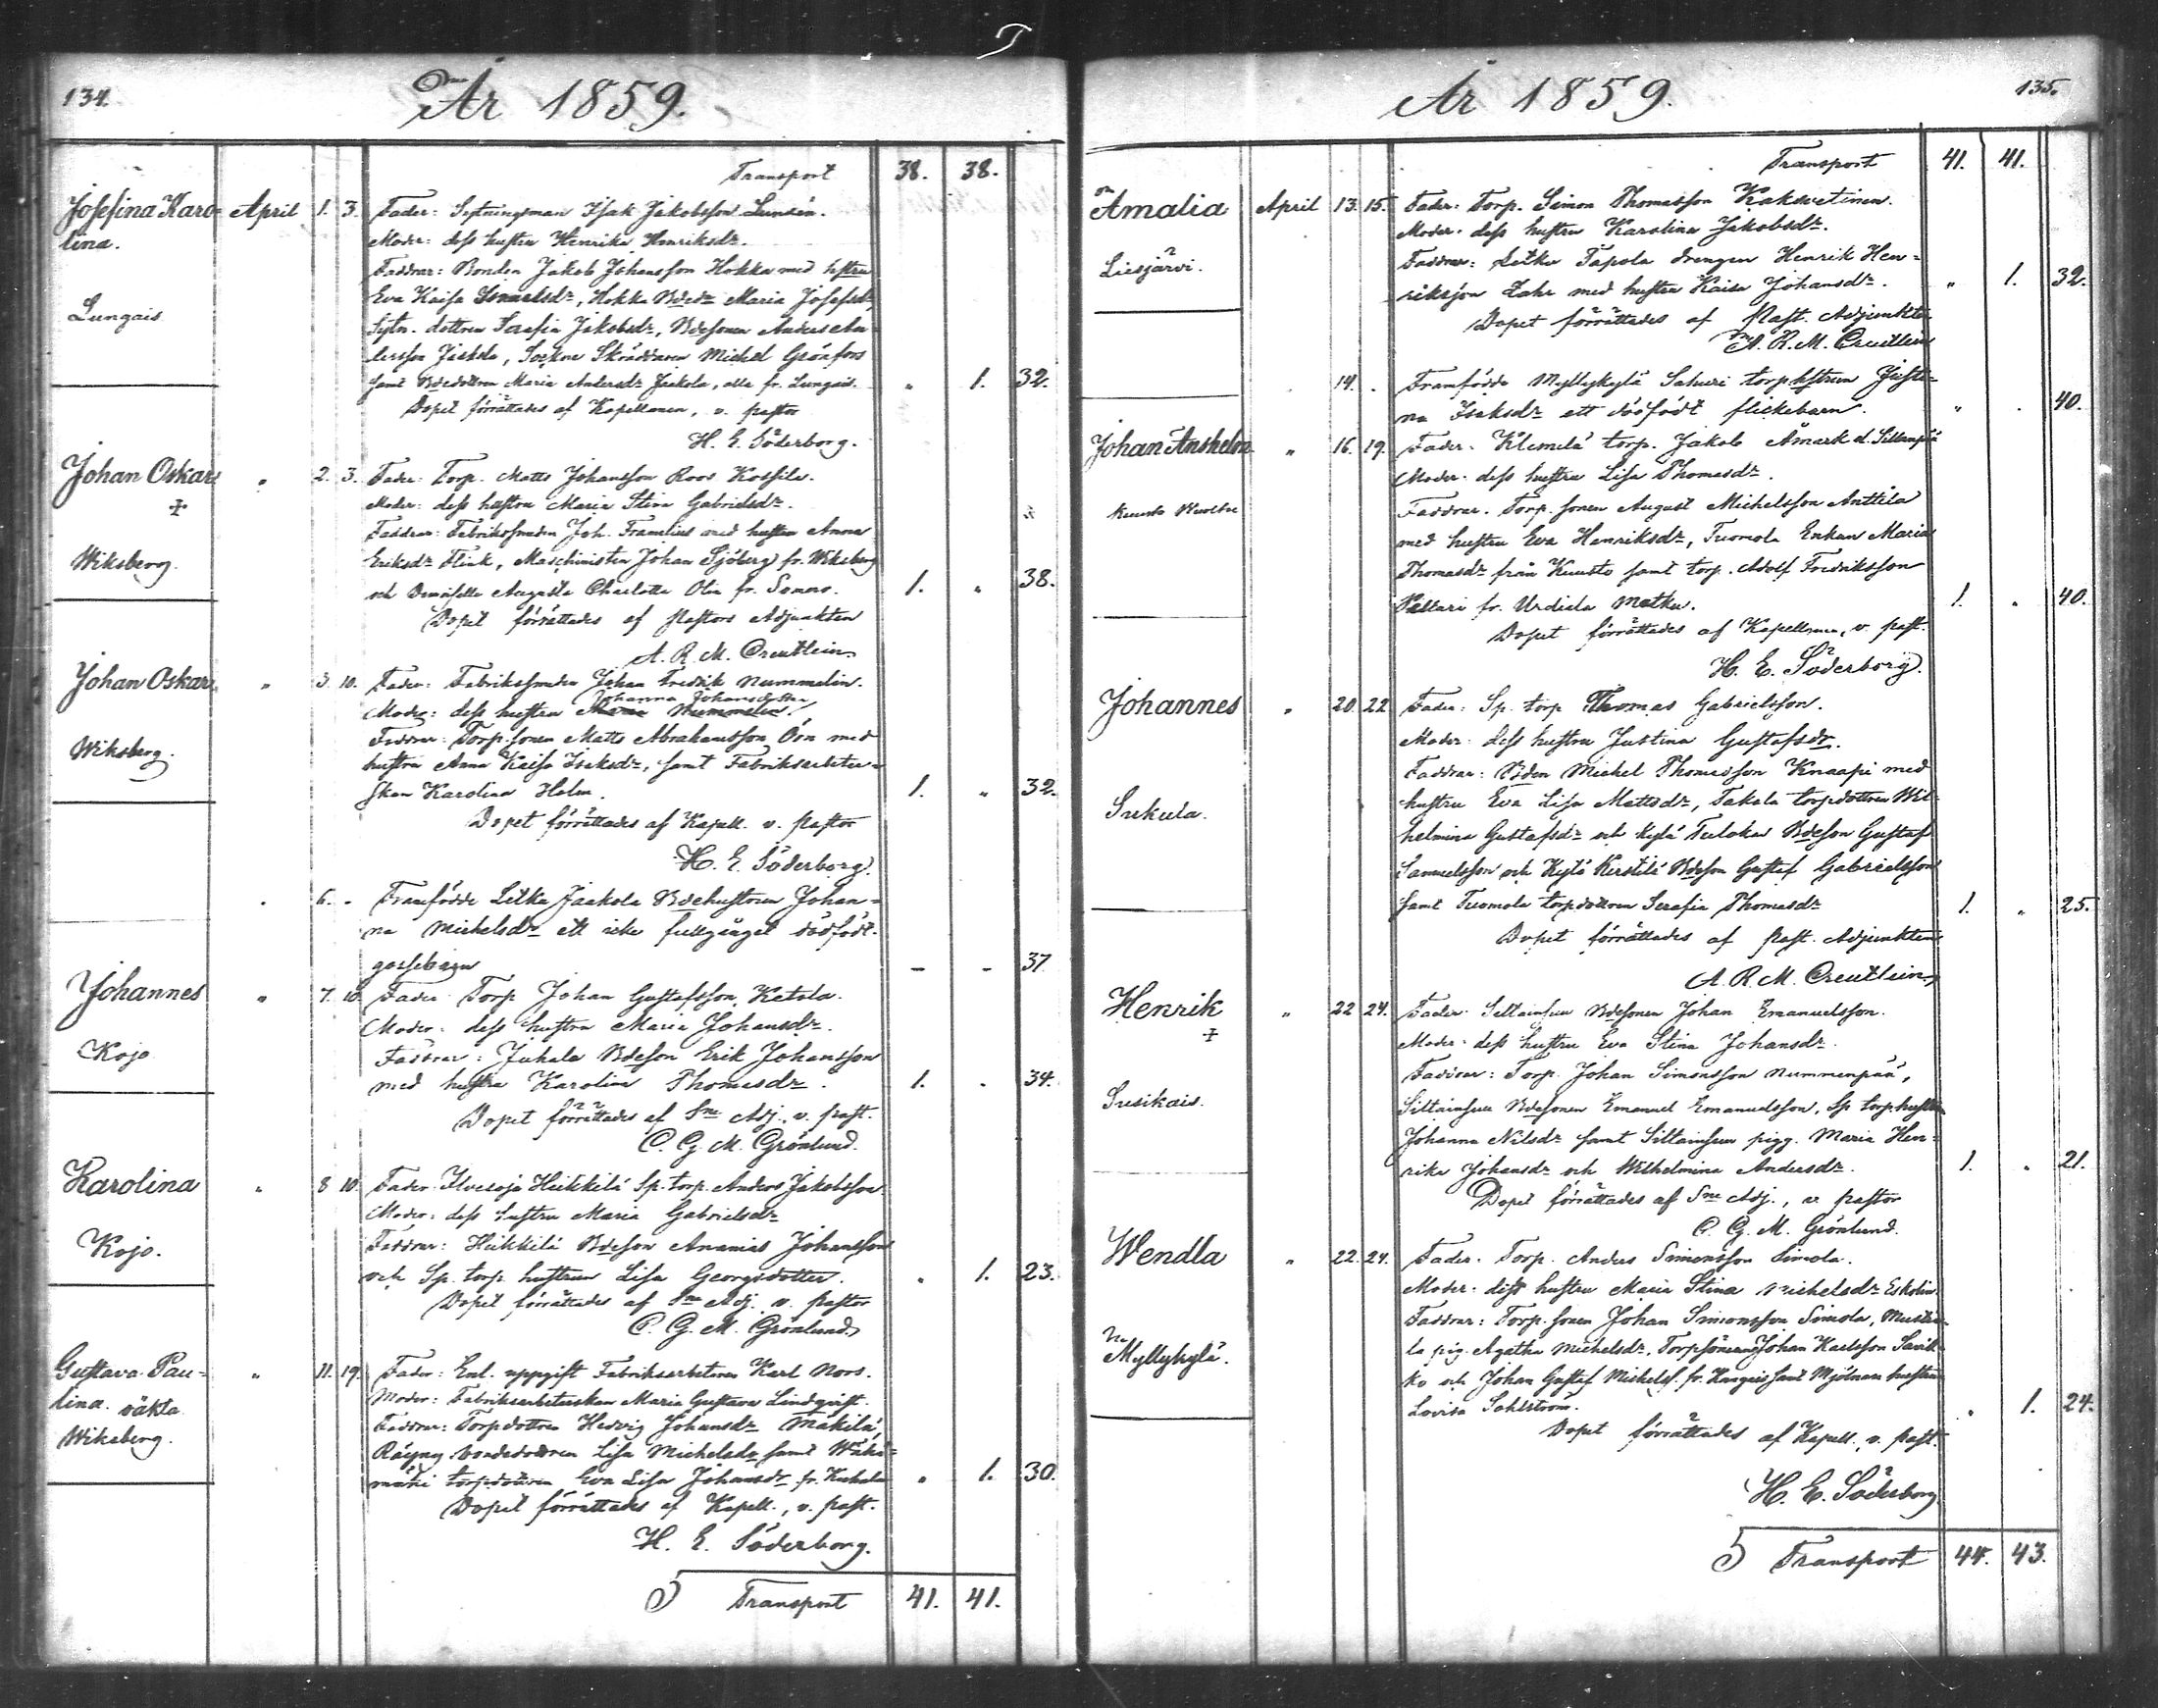 134.
År 1859.
Transport 38. 38.
Josefina Karo= April 1. 3. Fader: Sytningsman Isak Jakobsson Lunsén.
lina. Moder: dess hustru Henrika Henriksdr.
Faddrar: Bonden Jakob Johansson Hokka med hstru
Lungais Eva Kaisa, Hokka Bdedr Maria Josefsdr,
Sytn. dottren Serafia Jakobsdr, Bdesonen Anders An=
dersson Jaakola, Sockne Skräddaren Michel Grönfors
samt Bdedottren Maria Andersdr Jaakola, alla fr. Lungais. " 1. 32.
Dopet förrättades af Kapellanen, v. pastor
H. E. Söderborg.
Johan Oskar " 2. 3. Fader: Torp. Matts Johansson Roos Koskile.
+ Moder: dess hustru Maria Stina Gabrielsdr.
Faddrar: Fabrikssmeden Joh. Framelius med hustru Anna
Wiksberg. Eriksdr Flink, Maschinisten Johan Sjöberg fr. Wiksberg
och Demoiselle Augusta Charlotta Olin fr. Somero. 1. " 38.
Dopet förrättades af Pastors Adjunkten
A. R. M. Creutlein.
Johan Oskar " 3. 10. Fader: Fabrikssmeden Johan Fredrik Nummelin.
Johanna Johansdotter
Moder: dess hustru Nummelin.
Faddrar: Torp. sonen Matts Abrahamsson Öön med
Wiksberg. hustru Anna Kaisa Isaksdr, samt Fabriksarbeter=
skan Karolina Holm. 1. " 32.
Dopet förrättades af Kapell. v. pastor
H. E. Söderborg.
" 6. " Framfödde Letku Jaakola Bdehustren Johan=
na Michelsdr ett icke fullgånget dödfödt
gossebarn - - 37
Johannes " 7. 10. Fader: Torp Johan Gustafsson Ketola.
Moder: dess hustru Maria Johansdr.
Kojo Faddrar: Juhala Bdeson Erik Johansson
med hustru Karolina Thomasdr. 1. " 34.
Dopet förrättades af Sne Adj. v. past.
C. G. M. Grönlund.
Karolina " 8 10. Fader: Ilvesoja Heikkilä Sp. torp. Anders Jakobsson
Moder: dess hustru Maria Gabrielsdr
Kojo. Faddrar: Heikkilä Bdeson Ananias Johansson
och Sp. torp. hustrun Lisa Georgsdotter. " 1. 23.
Dopet förrättades af Sne Adj. v. pastor
C. G. M. Grönlund.
Gustava Pau= " 11. 19. Fader: Enl. uppgift Fabriksarbetaren Karl Noos.
lina. oäkta Moder: Fabriksarbeterskan Maria Gustava Lindqvist.
Wiksberg. Faddrar: Torpdottren Hedvig Johansdr Mäkilä,
bondedottren Lisa Michelsdr samt Wähä=
mäki torpdottren Eva Lisa Johansdr fr. " 1. 30.
Dopet förrättades af Kapell., v. past.
H. E. Söderborg.
Transport 41. 41.
År 1859.
135.
Transport 41. 41.
Amalia April 13. 15. Fader: Torp. Simon Thomasson Kakwetinen.
Moder: dess hustru Karolina Jakobsdr.
Liesjärvi. Faddrar: Letku Tapola drengen Henrik Hen=
riksson Lahr med hustru Kaisa Johansdr. " 1. 32.
Dopet förrättades af Past. Adjunkten
A. R. M. Creutlein
14. " Framfödde Myllykylä Sahuri torphstrun Justi=
na Isaksdr ett dödfödt flickebarn. " " 40.
Johan Anshelm " 16. 19. Fader: Klemelä torp. Jakob Åmark
Moder: dess hustru Lisa Thomasdr.
Faddrar: Torp. sonen August Michelsson Anttila
med hustru Eva Henriksdr, Tuomola Enkan Maria
Thomasdr från Kuusto samt torp. Adolf Fredriksson
fr. Urdiala Matku. 1. " 40.
Dopet förrättades af Kapellanen, v. past.
H. E. Söderborg.
Johannes " 20. 22 Fader: Sp. torp Thomas Gabrielsson.
Moder: dess hustru Justina Gustafsdr.
Faddrar: Bden Michel Thomasson Knaapi med
Sukula. hustru Eva Lisa Mattsdr, Takala torpdottren Wil=
helmina Gustafsdr och Kylä Teeloka Bdeson Gustaf
Samuelsson och Kylä Kerstilä Bdeson Gustaf Gabrielsson
samt Tuomola torpdottren Serafia Thomasdr 1. " 25.
Dopet förrättades af past. Adjunkten
A. R. M. Creutlein
Henrik " 22 24. Fader: Siltainsuu Bdesonen Johan Emanuelsson.
+ Moder: dess hustru Eva Stina Johansdr.
Faddrar: Torp. Johan Simonsson Nummenpää,
Susikais. Siltainsuu Bdesonen Emanuel Emanuelsson, Sp. torp. hustru
Johanna Nilsdr samt Siltainsuu pigg. Maria Hen=
rika Johansdr och Wilhelmina Andersdr. 1. " 21.
Dopet förrättades af Sne Adj., v. pastor
C. G. M. Grönlund.
Wendla " 22. 24. Fader: Torp. Anders Simonsson Simola.
Moder: dess hustru Maria Stina Michelsdr Eskolin
Faddrar: Torp. sonen Johan Simonsson Simola,
Myllykylä. la pig. Agatha Michelsdr, Torpsönerna Johan Karlsson
ko och Johan Gustaf Michelss. fr. Kangais samt Mjölnare hustrun
Lovisa Sahlström. " 1. 24.
Dopet förrättades af Kapell., v. past.
H. E. Söderborg
Transport 44. 43.